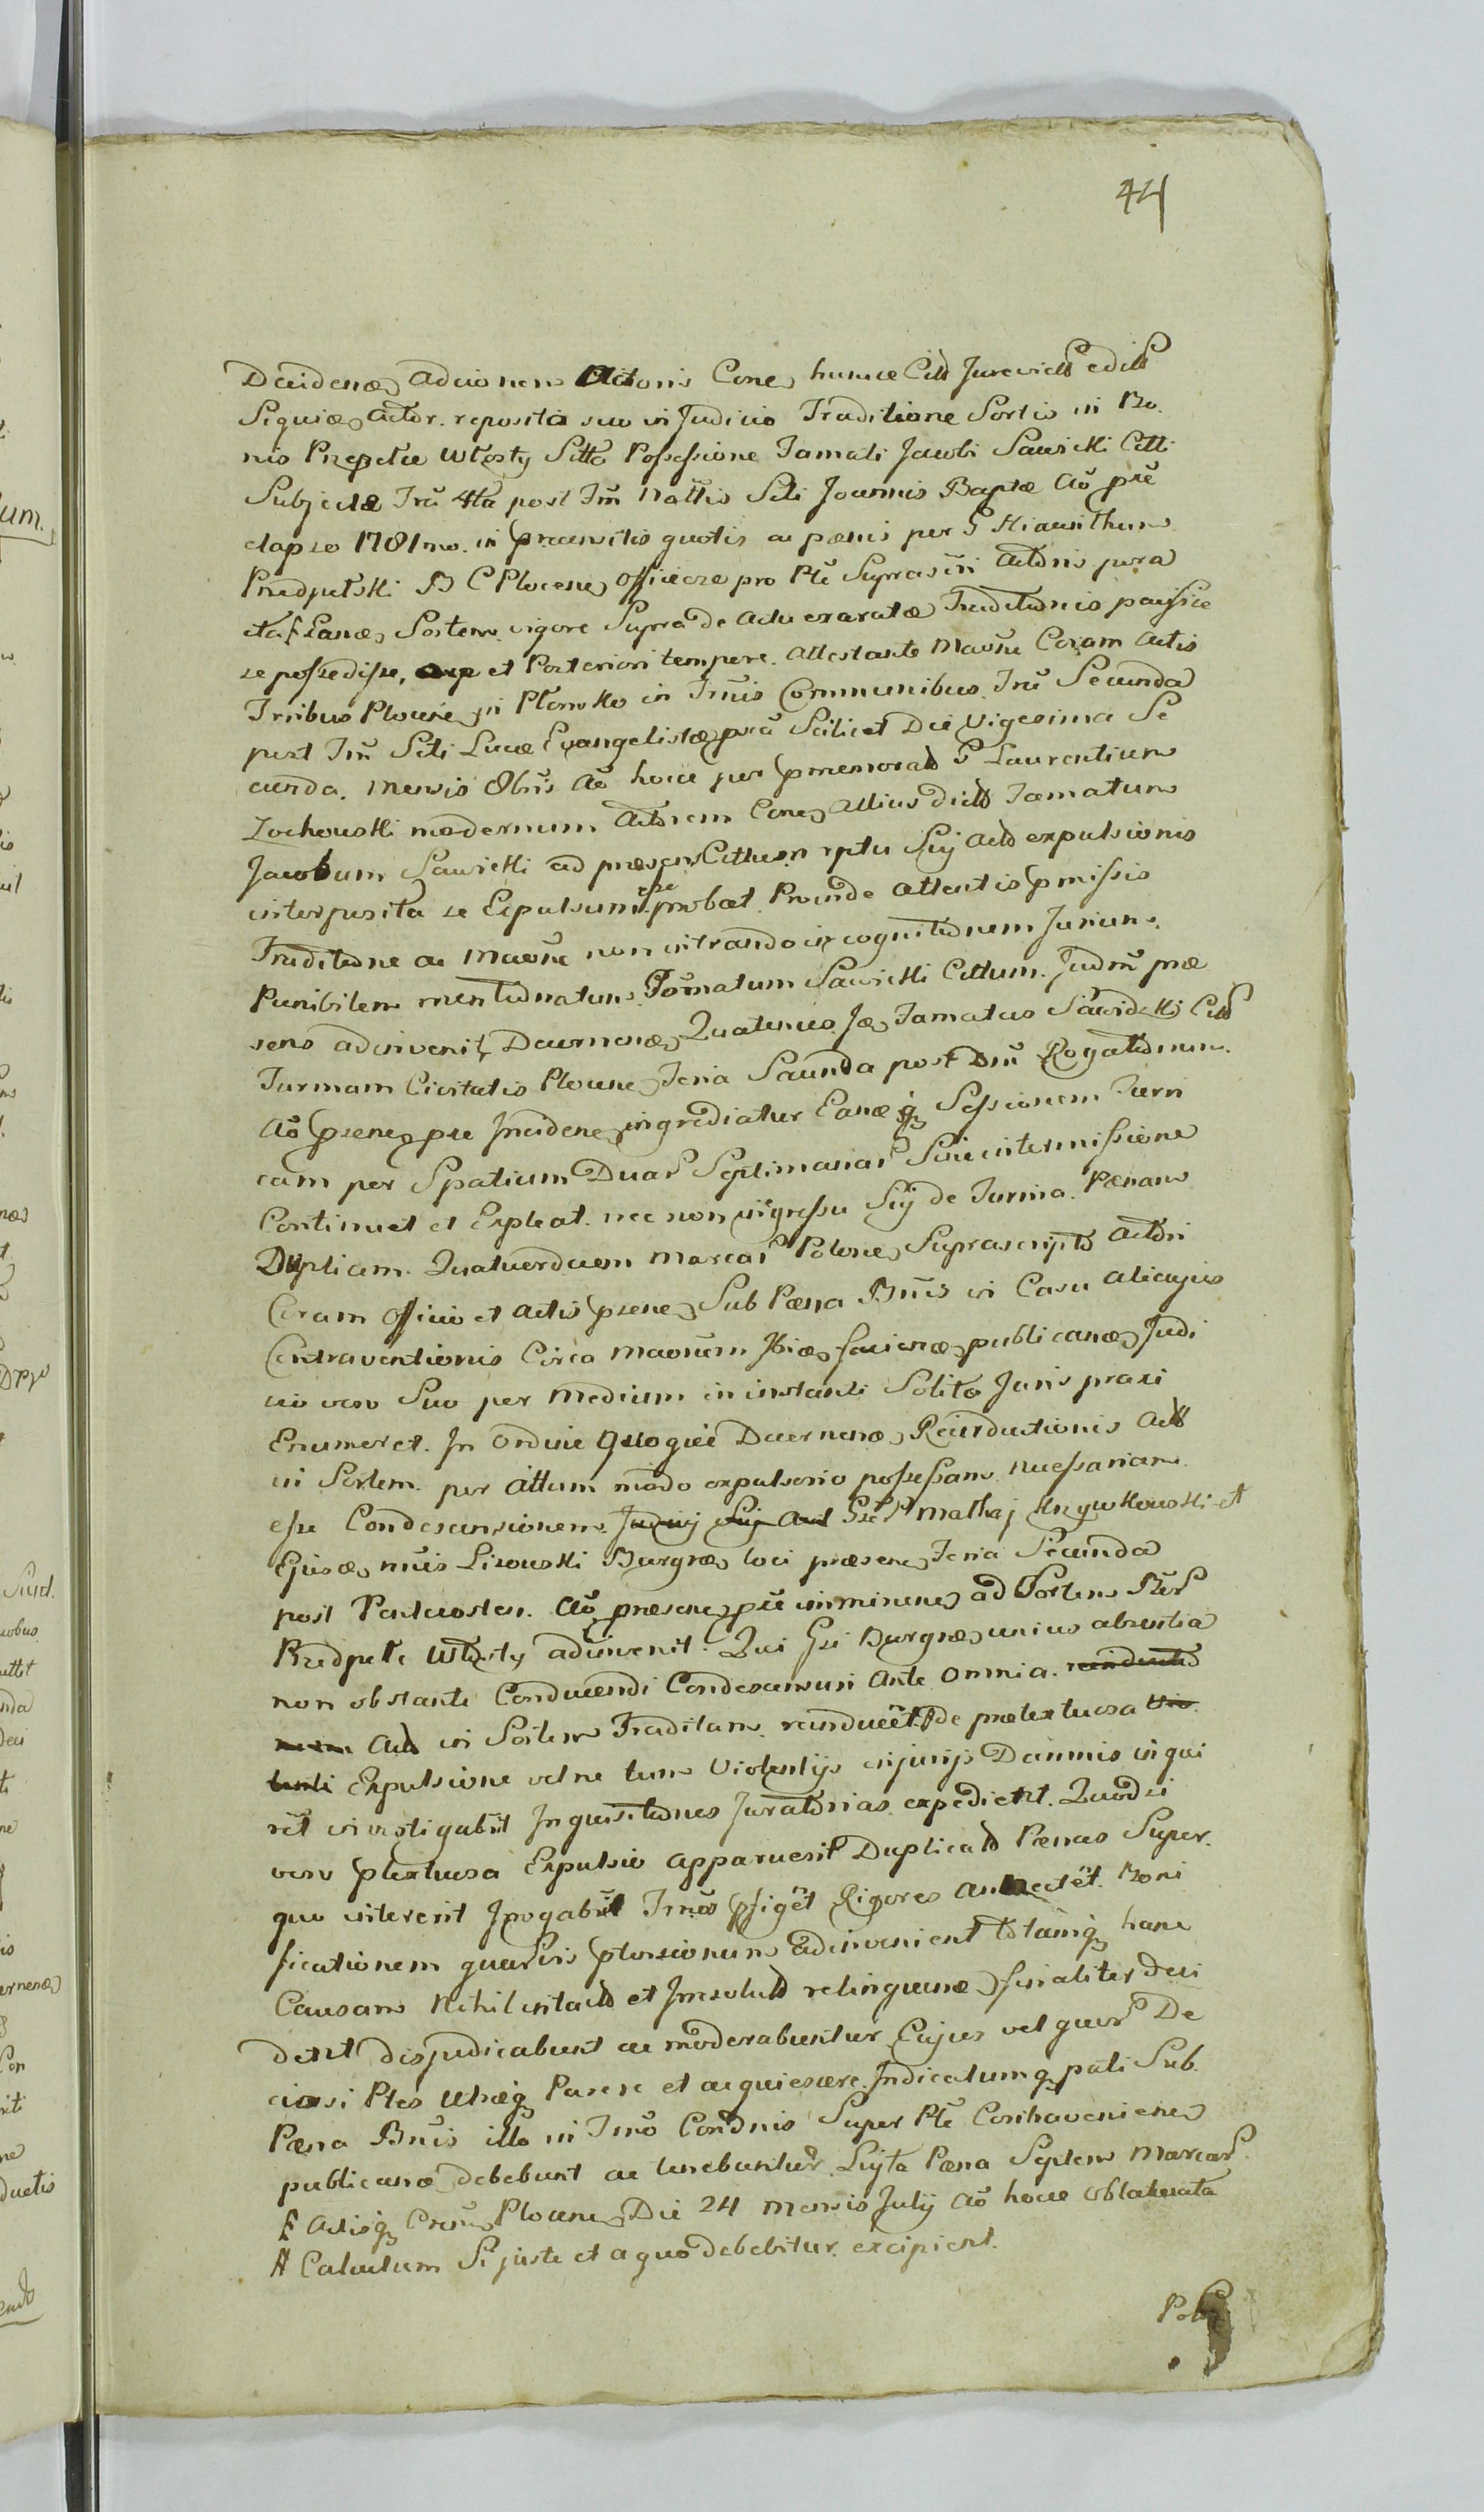 44
Decidend Actionem Actoris Conc hunce Citt Jurevictt edict
Siquid Actor. reposita suo in Judicio Traditione Sortis in Bo
nis Przedpełce Wtosty Sitta Possessione Famati Jacobi Sawicki Citti
Subjecta Fria 4ta post Fm Nattis Scti Joannis Baptæ Aõ pñe
elapso 1781mo. in præinsitis quotis ac pænis per G Hiacinthum
Przedpełski B C Plocen Officioze pro Pte Suprascri Actoris jura
ita F Eand Sortem vigore Supra de Actu exaratæ Traditionis pacifice
se possedisse, et Posteriori tempore. Attestante Maõne Coram Actis
Trribus Plocens in Płonsko in Tmis Communibus Fria Secunda
post Fm Scti Lucæ Evangelistæ pxa Scilicet Die Vigesima Se
cunda. Mensis 8bris Aõ hocce per pmemorat G Laurentium
Zochowski modernum Actorem Conc Allius dict Famatum
Jacobum Sawicki ad præsens Cittum rptu Sui Act expulsionis
interposita se Expulsum esse probat Proinde Attentis pmissis
Traditione ac Maõne non intrando in cognitionem Jurium.
Punibilem mentionatum Famatum Sawicki Cittum. Judm præ
sens adinvenit, Decernend Quatenus Id Famatus Sawicki Citt
Turmam Civitatis Plocens Feria Secunda post Dm Rogationum.
Aõ psenc pxe Inciden ingrediatur Eand q Sessionem Turri
cam per Spatium Duar Septimanar Sine intermissione
Continuet et Expleat. nec non ingressu Suj de Turma. Pænam
Duplicem. Quatuordecem Marcar Polonc Suprascript Actori
Coram Officio et Actis psenc Sub Pæna Bnis in Casu Alicujus
Contraventionis Circa Maonem Ibid faciend publicand Judi
cio vero Suo per Medium in instanti Solita Juris praxi
Enumeret. In Ordine Quoque Decernend Reinductionis Act
in Sortem. per Cittum modo expulsorio possessam necessariam
esse Condescensionem Judicij Suj Gsr Mathæj Krzyczkowski et
Ejusd nis Lisowski Burgrab loci præsenc Feria Secunda
post Pentecosten. Aõ præsenc pxe imminenc ad Sortem Bnr
Przedpełce Wtosty adinvenit. Qui Gsi Burgrab unius absentia
non obstante Conducendi Condescensuri Ante Omnia. reinductio
nem Act in Sortem Traditam reinducent de prætextuosa Vio
lenti Expulsione vel ne tum Violentijs injurijs Damnis inqui
rent investigabunt Inquisitiones Juratorias expedient. Quodsi
vero ptextuosa Expulsio apparuerit Duplicat Pænas Super.
quo intererit Irrogabunt Tmos pfigent Rigores Annectent. Boni
ficationem quarvis ptensionum adinvenient totamq hanc
Causam Nihil intact et Irresolut relinquend finaliter deci
dent disjudicabunt ac moderabuntur Cujus vel quor De
cisi Ptes utræq Parere et acquiescere. Indicatumq pati Sub.
Pæna Bnis illo in Tmo Condnis Super Pte Contraveniente
publicand debebunt ac tenebuntur. Luita Pæna Septem Marcar
F Actisq Crsu Plocens Die 24 Mensis Julij Aõ hocce Oblaterata
A Calculum Si juste et a quo debebitur. excipient.